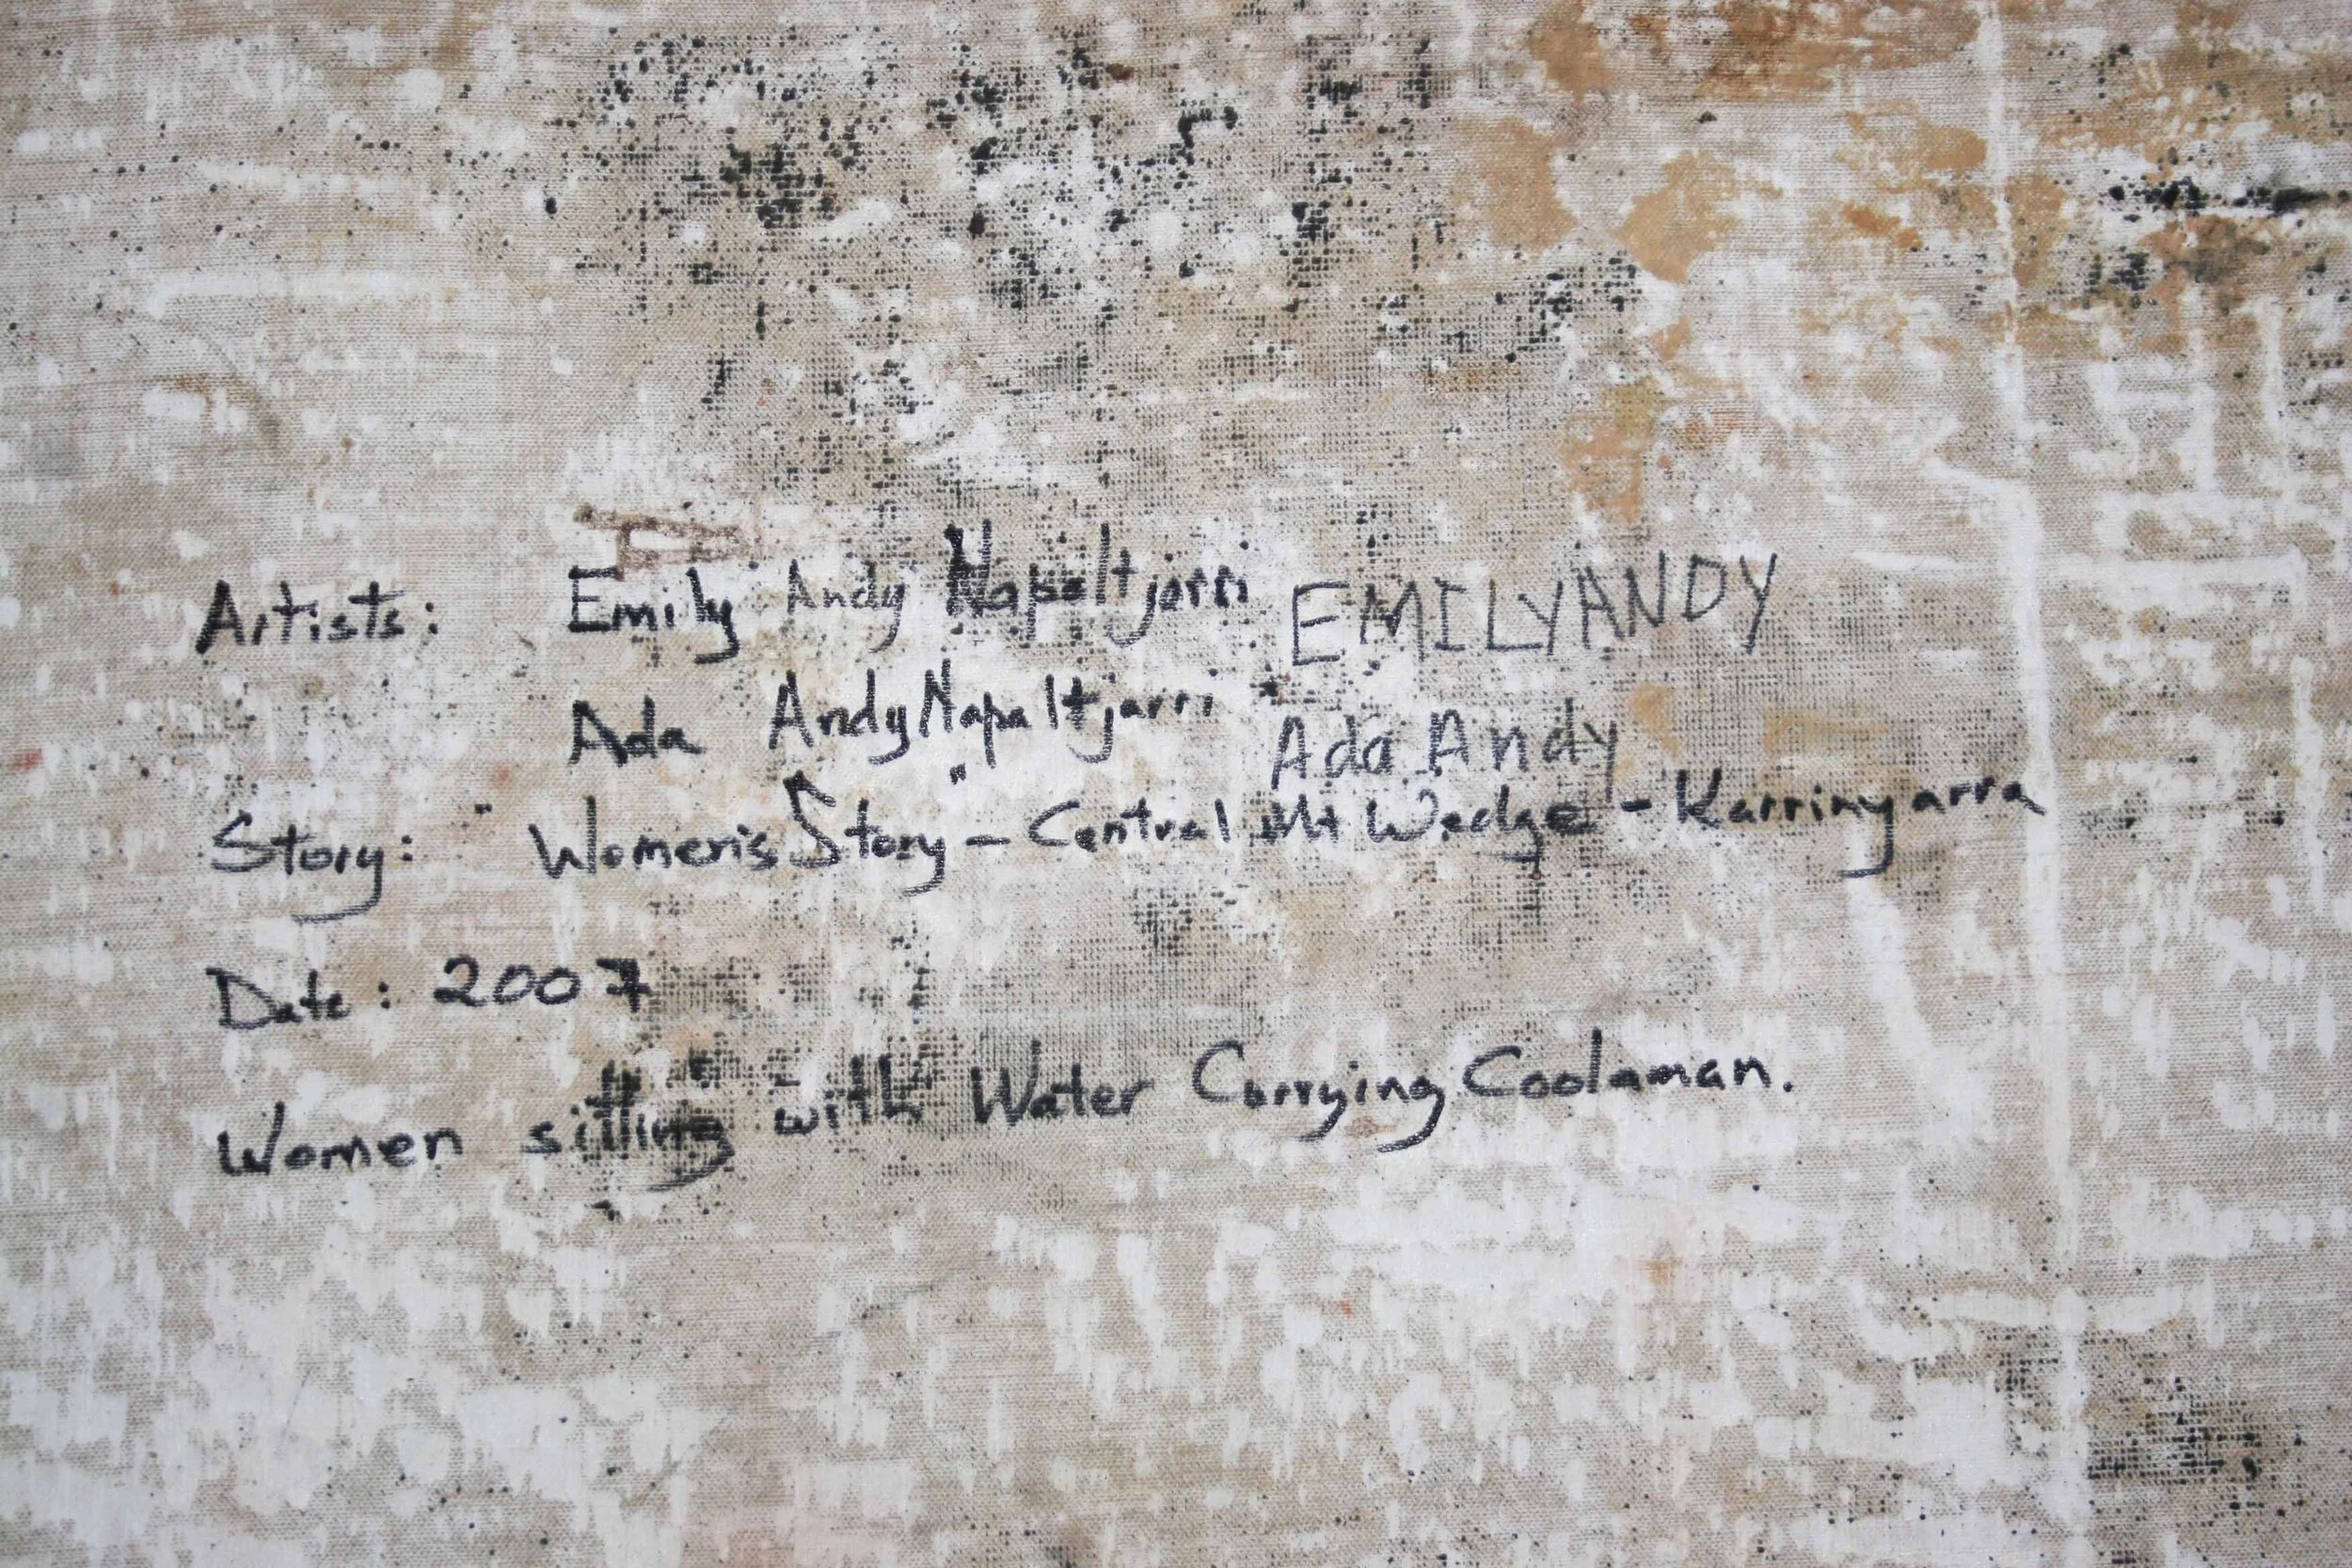 Artists: Emily Andy Napaltjarri EMILYANDY
Ada Andy Napaltjarri Ada Andy
Story: "Women's Story" - Central Mt Wedge - Karrinyarra
Date: 2007
Women sitting with Water Carrying Coolaman.